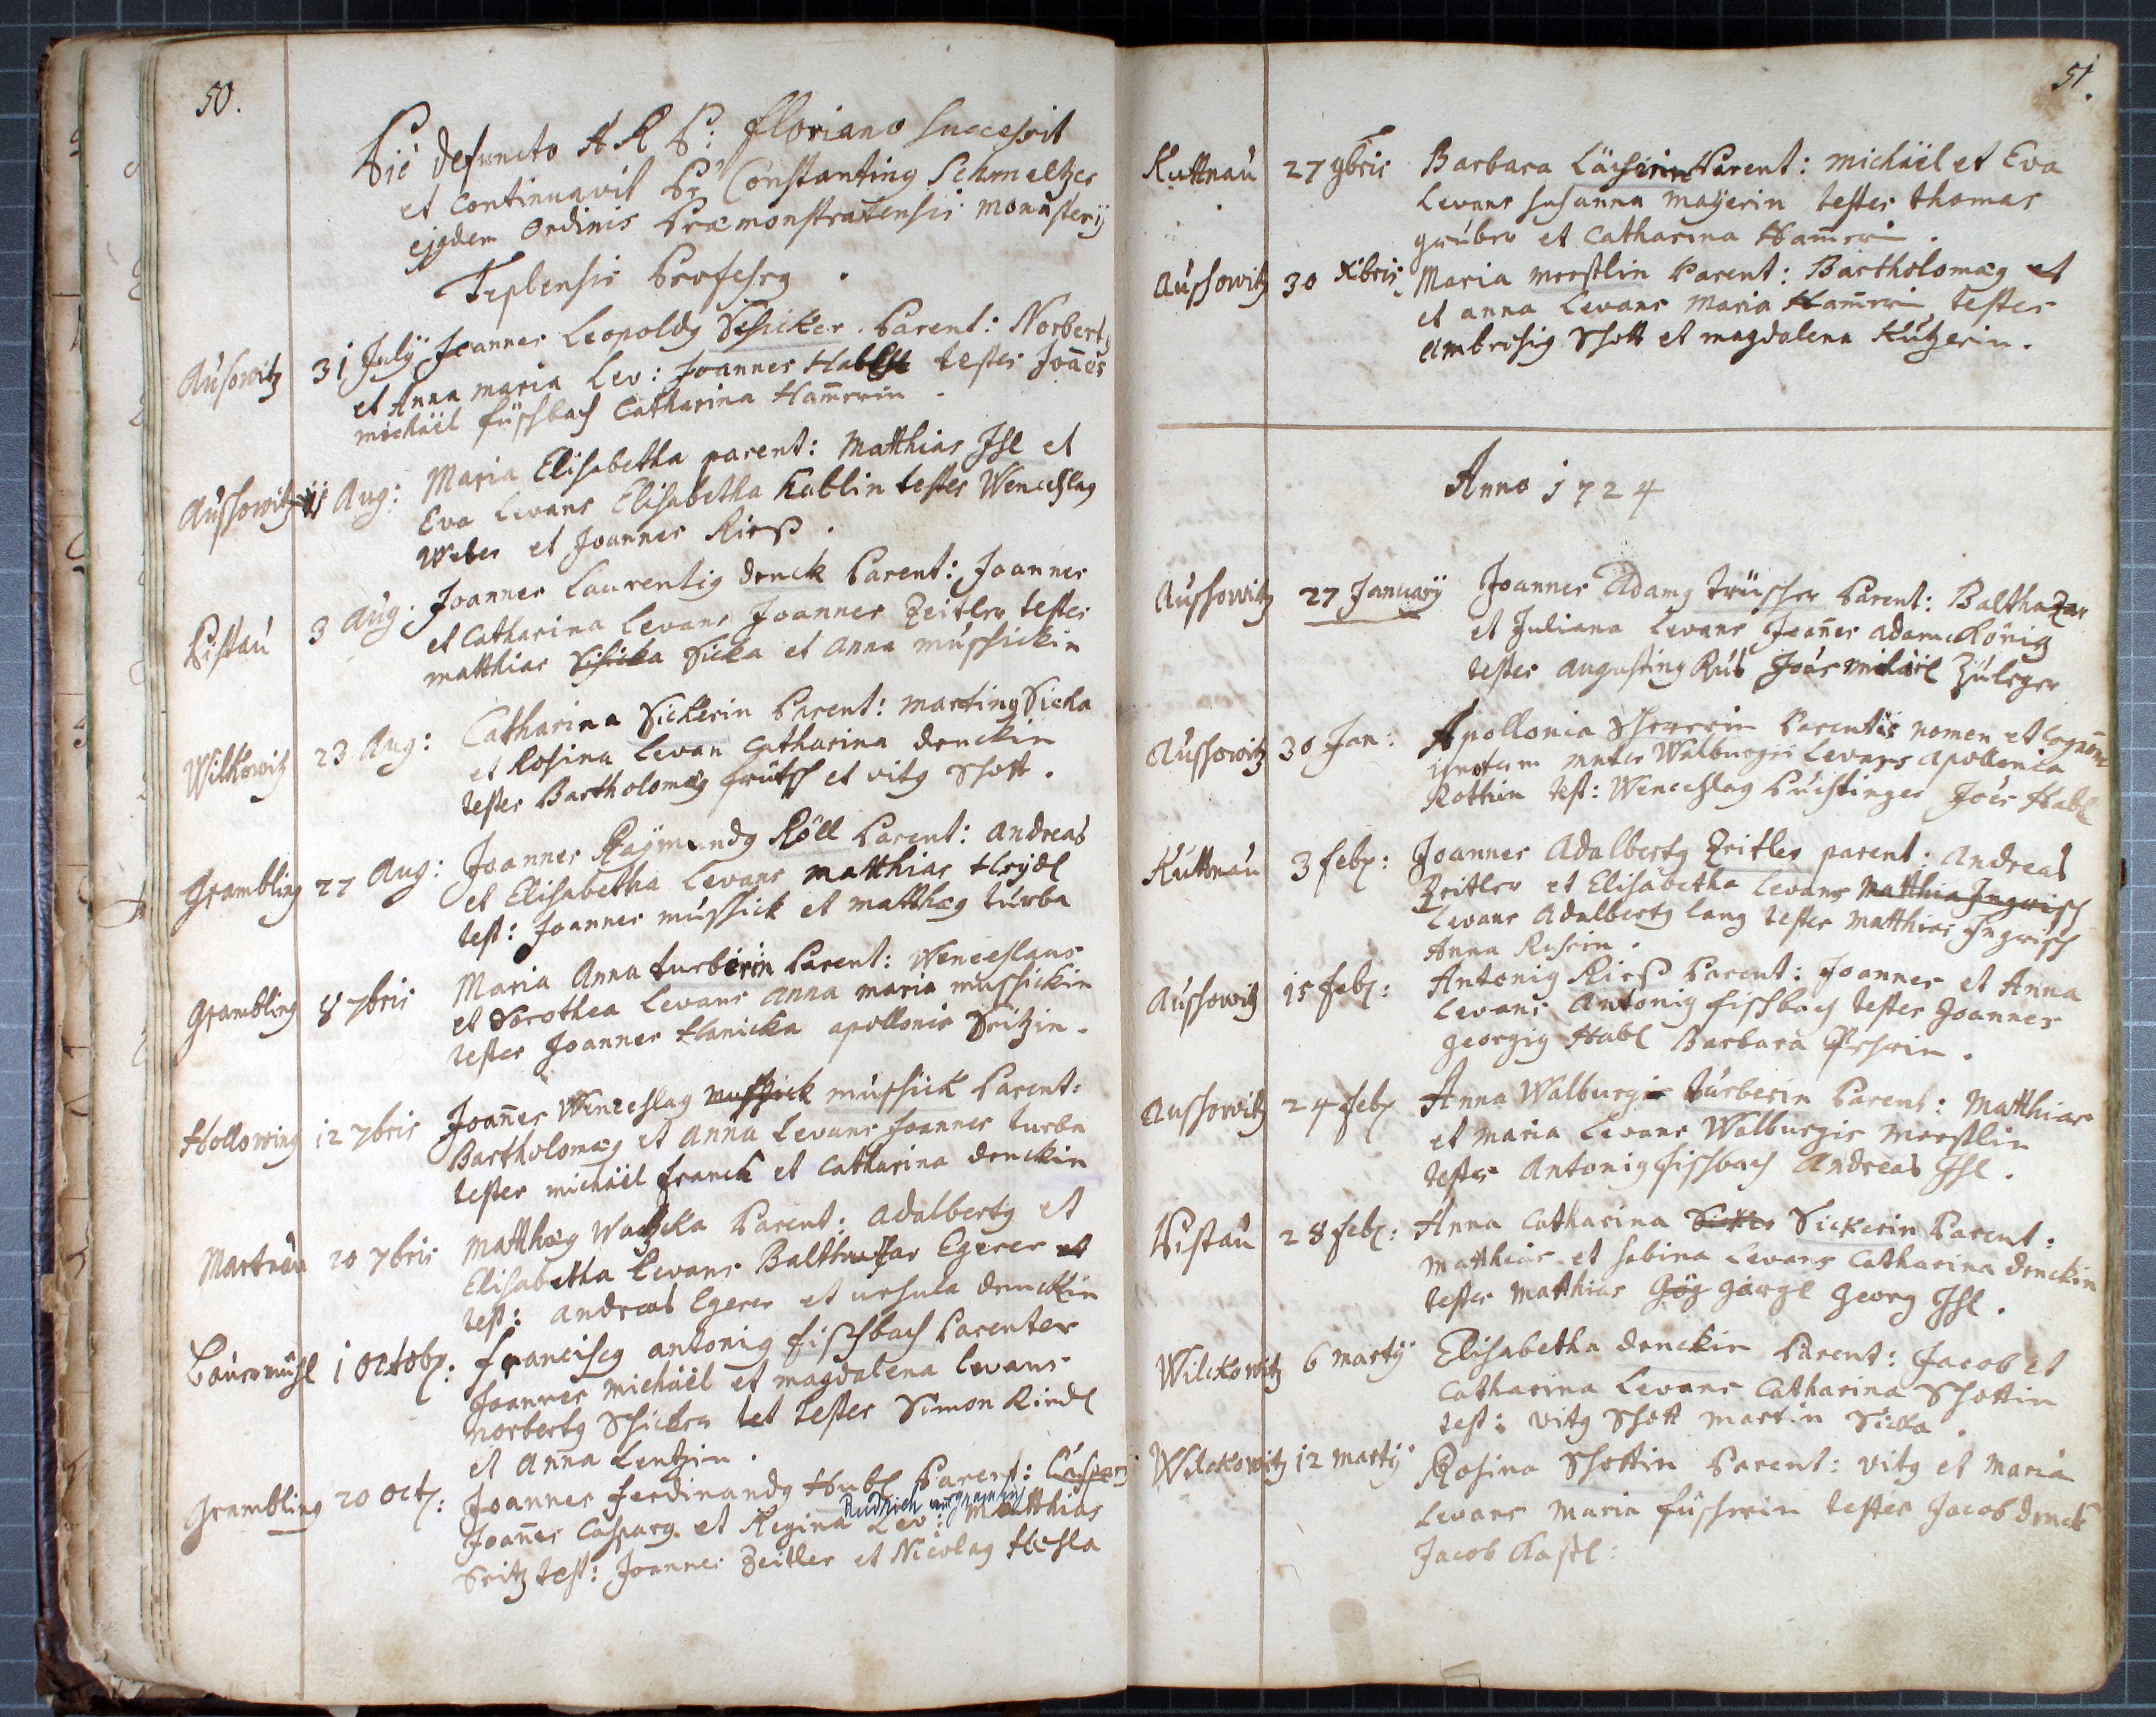 50.
Piè defuncto A R P: Floriano successit
et continuavit Pr Constantinq Schmeltzer
ejqdem Ordinis Præmonstratensis monasterÿ
Teplensis Professq.
Ausowitz 31 Julÿ Joannes Leopoldq Schicker. Parent: Norbertq
et Anna maria Lev: Joannes Habl testes Joañes
michäel füschbach Catharina Ham̃erin.
Auschowitz 11 Aug: Maria Elisabetha parent: Matthias Ihl et
Eva Levans Elisabetha Kablin testes Wenceslaq
Weber et Joannes Rieß.
Pistau 3 Aug: Joannes Laurentiq denck Parent: Joannes
et Catharina Levans Joannes Zeitler testes
matthias Sicka et Anna muschickin
Wilkowitz 23 Aug: Catharina Sickerin Parent: martinq Sicka
et Rosina Levan Catharina denckin
testes Bartholomæq frütsch et vitq Schott.
Grambling 27 Aug: Joannes Raÿmundq Röll Parent: Andreas
et Elisabetha Levans matthias Heÿdl
test: Joannes muschick et matthæq turba
Grambling 8 7bris Maria Anna turberin Parent: Wenceslaus
et Dorothea Levans Anna maria muschickin
testes Joannes Hanicka apollonia Seitzin.
Hollowing 12 7bris Joañes Wenceslaq muschick muschick Parent:
Bartholomæq et Anna Levans Joannes turba
testes michäel franck et Catharina denckin
Martnau 20 7bris Matthæq Watzka Parent: Adalbertq et
Elisabetha Levans Balthazar Egerer et
test: Andreas Egerer et ursula denckin
1 Octobr: franciscq antoniq fischbach Parentes
Joannes michäel et magdalena levans
Norbertq Schicker tet testes Simon Riedl
et Anna Lentzin.
Grambling 20 Octr: Joannes ferdinandq Hubl Parent: Casparq
Joañes Casparq et Regina Lev: Matthias
Seitz test: Joannes Zeitler et Nicolaq Hæsla
51.
Kuttnau 27 9bris Barbara Parent: michäel et Eva
Levans susanna maÿerin testes thomas
grüber et Catharina Ham̃erin.
Auschowitz 30 Xbris Maria merstlin Parent: Bartholomæq et
et anna Levans Maria Ham̃erin testes
Ambrosiq Schott et magdalena Kutzerin.
Anno 1724
Auschowitz 27 Januarÿ Joannes Adamq trüscher Parent: Balthazar
et Juliana Levans Joañes adam König
testes Augustinq Rus Joẽs michäel Züleger
Auschowitz 30 Jan: Apollonia Parentis nomen et Cognom̃e
ignotum mater Walburgis Levans apollonia
Rothin test: Wenceslaq Püchtinger Joẽs Habl
Kuttnau 3 febr: Joannes Adalbertq Zeitler parent: Andreas
Zeitler et Elisabetha Levans Matthia Ingrisch
Levans Adalbertq lang testes Matthias Ingrisch
Anna
Auschowitz 15 febr: Antoniq Rieß Parent: Joannes et Anna
Levans Antoniq fischbach testes Joannes
Georgiq Habl Barbara
Auschowitz 24 febr Anna Walburgis türberin Parent: Matthias
et maria Levans Walburgis merstlin
testes Antoniq fischbach Andreas Ihl.
Pistau 28 febr: Anna Catharina Sicker Sickerin Parent:
Matthias et sabina Levans Catharina denckin
testes Matthias görgl Georg Ihl.
Wilckowitz 6 martÿ Elisabetha denckin Parent: Jacob et
Catharina Levans Catharina Schottin
test: vitq Schott martin Sicka.
Wilckowitz 12 martÿ Rosina Schottin Parent: vitq et Maria
Levans Maria füscherin testes Jacob denck
Jacob Kastl: